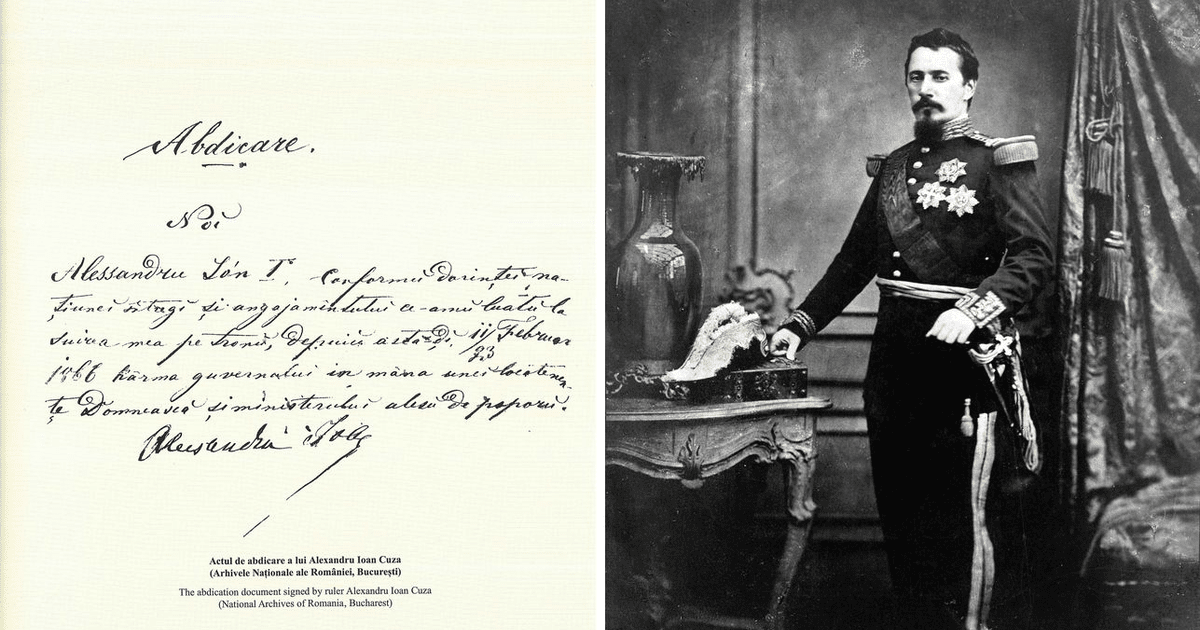 Abdicare.
Noi
Alessandru Ión I°. Conformu dorinței na-
țiunei întregi și angajamentului ce-amu luatu la
suirea mea pe tronu, depuiu astădi, 11/23 Februar
1866 kârma guvernului in mâna unei locotenen-
țe Domneascâ și ministerului alesu de poporu.
Alessandru Ión
Actul de abdicare a lui Alexandru Ioan Cuza
(Arhivele Naționale ale României, București)
The abdication document signed by ruler Alexandru Ioan Cuza
(National Archives of Romania, Bucharest)